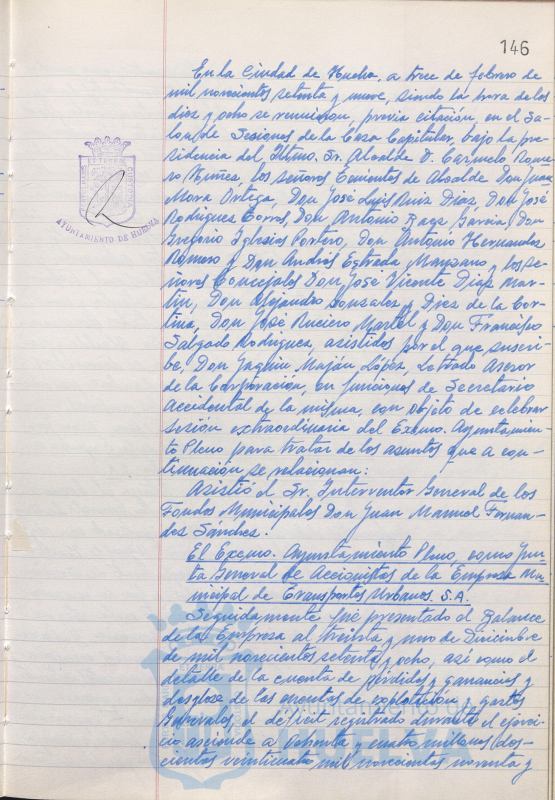 146
En la Ciudad de Huelva, a trece de febrero de
mil novecientos setenta y nueve, siendo la hora de las
diez y ocho se reunieron, previa citación, en el Sa-
lon de Sesiones de la Casa Capitular, bajo la pre-
sidencia del Iltmo. Sr. Alcalde D. Carmelo Rome-
ro Núñez, los señores Tenientes de Alcalde Don Juan
Mora Ortega, Don José Luis Ruiz Díaz, Don José
Rodríguez Don Antonio García, Don
Gregorio Iglesias Portero, Don Antonio Hernández
Romero y Don Andrés Estrada Manzano y los se-
ñores Concejales Don José Vicente Díaz Mar-
tín, Don Alejandro González y Díez de la Cor-
tina, Don José Ruciero Martel y Don Francisco
Salgado Rodríguez, asistidos por el que suscri-
be, Don Joaquín Maján López, Letrado Asesor
de la Corporación, en funciones de Secretario
Accidental de la misma, con objeto de celebrar
sesión extraordinaria del Excmo. Ayuntamien-
to Pleno para tratar de los asuntos que a con-
tinuación se relacionan:
Asistió el Sr. Interventor General de los
Fondos Municipales Don Juan Manuel Fernan-
dez Sánchez.
El Excmo. Ayuntamiento Pleno, como Jun-
ta General de Accionistas de la Empresa Mu-
nicipal de Transportes Urbanos. S.A.
Seguidamente fué presentado el Balance
de la Empresa al treinta y uno de Diciembre
de mil novecientos setenta y ocho, así como el
detalle de la cuenta de pérdidas y ganancias y
desglose de las cuentas de explotación y gastos
generales, el deficit registrado durante el ejerci-
cio asciende a ochenta y cuatro millones dos-
cientos mil novecientos noventa y
AYUNTAMIENTO DE HUELVA
Ayuntamiento de
HUELVA